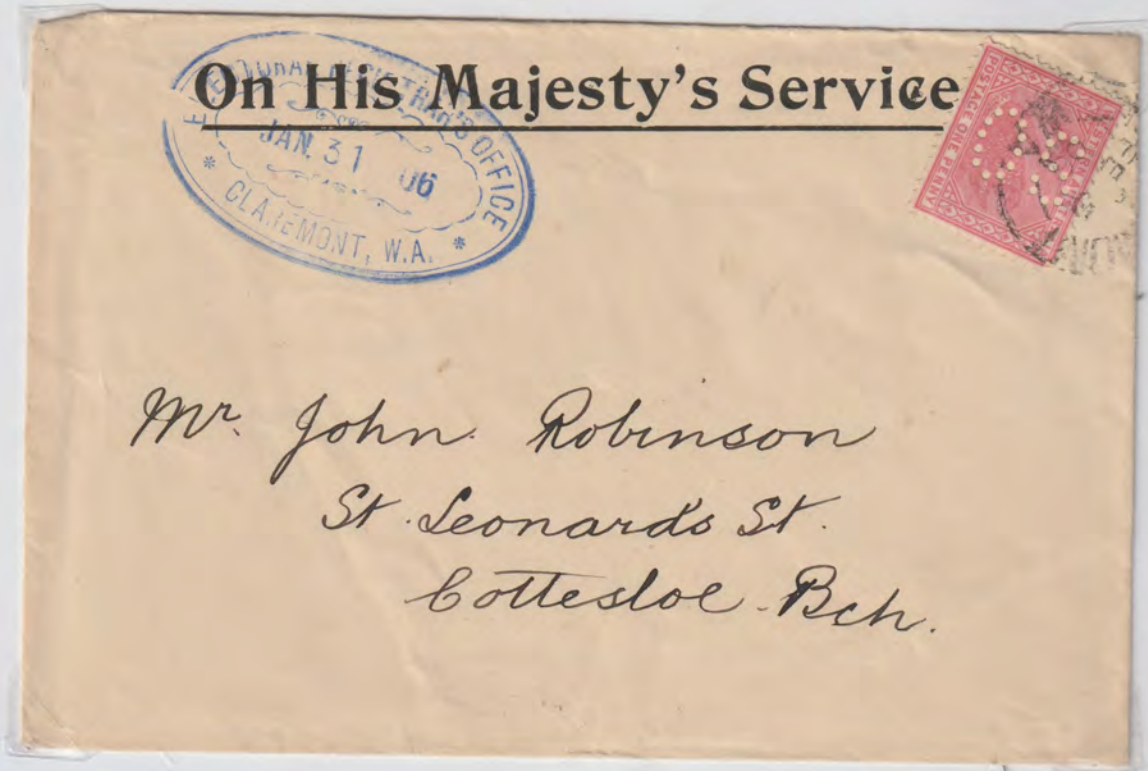 On His Majesty's Service
ELECTORAL REGISTRAR'S OFFICE
JAN. 31 06
* CLAREMONT, W.A. *
POSTAGE ONE PENNY
WESTERN AUSTRALIA
Mr. John Robinson
St. Leonard's St.
Cottesloe Bch.